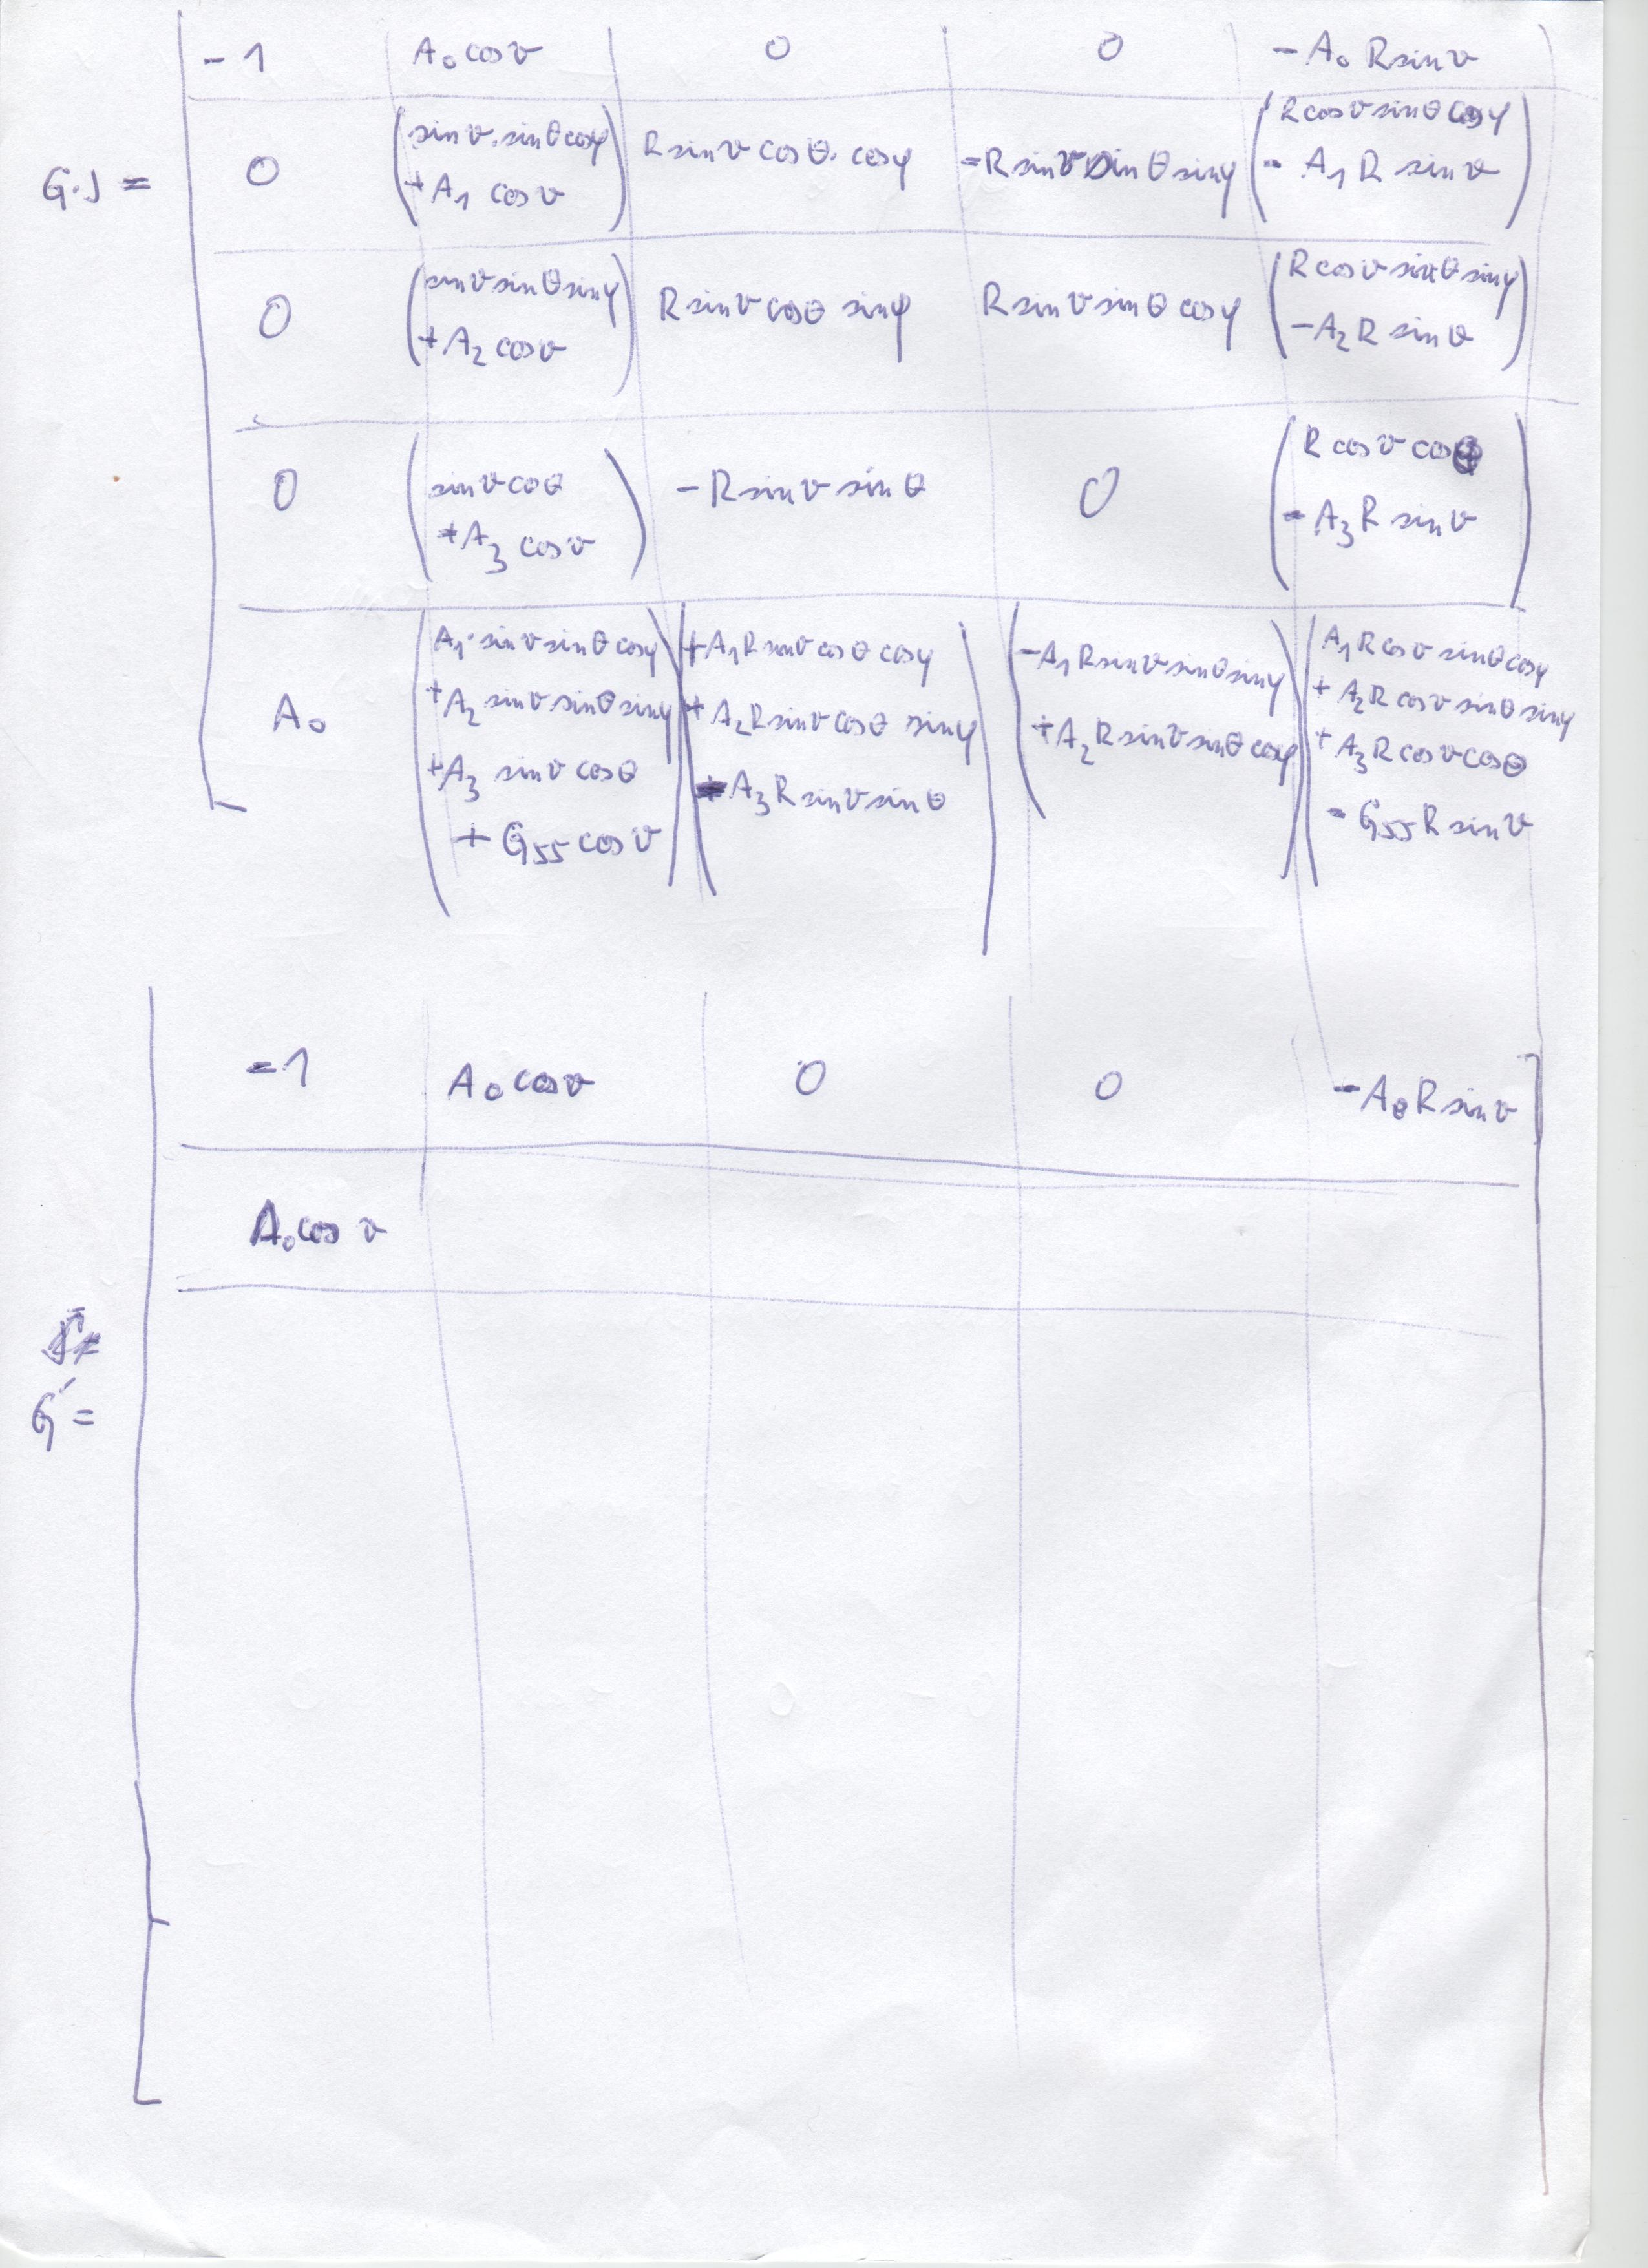 - 1 A₀ cos v 0 0 - A₀ R sin v
G·J = 0 ( sin v · sin θ cos φ + A₁ cos v ) R sin v cos θ · cos φ - R sin v sin θ sin φ ( R cos v sin θ cos φ - A₁ R sin v )
0 ( sin v sin θ sin φ + A₂ cos v ) R sin v cos θ sin φ R sin v sin θ cos φ ( R cos v sin θ sin φ - A₂ R sin v )
0 ( sin v cos θ + A₃ cos v ) - R sin v sin θ 0 ( R cos v cos θ - A₃ R sin v )
A₀ ( A₁ · sin v sin θ cos φ + A₂ sin v sin θ sin φ + A₃ sin v cos θ + G₅₅ cos v ) ( + A₁ R sin v cos θ cos φ + A₂ R sin v cos θ sin φ - A₃ R sin v sin θ ) ( - A₁ R sin v sin θ sin φ + A₂ R sin v sin θ cos φ ) ( A₁ R cos v sin θ cos φ + A₂ R cos v sin θ sin φ + A₃ R cos v cos θ - G₅₅ R sin v )
- 1 A₀ cos v 0 0 - A₀ R sin v
A₀ cos v
G' =